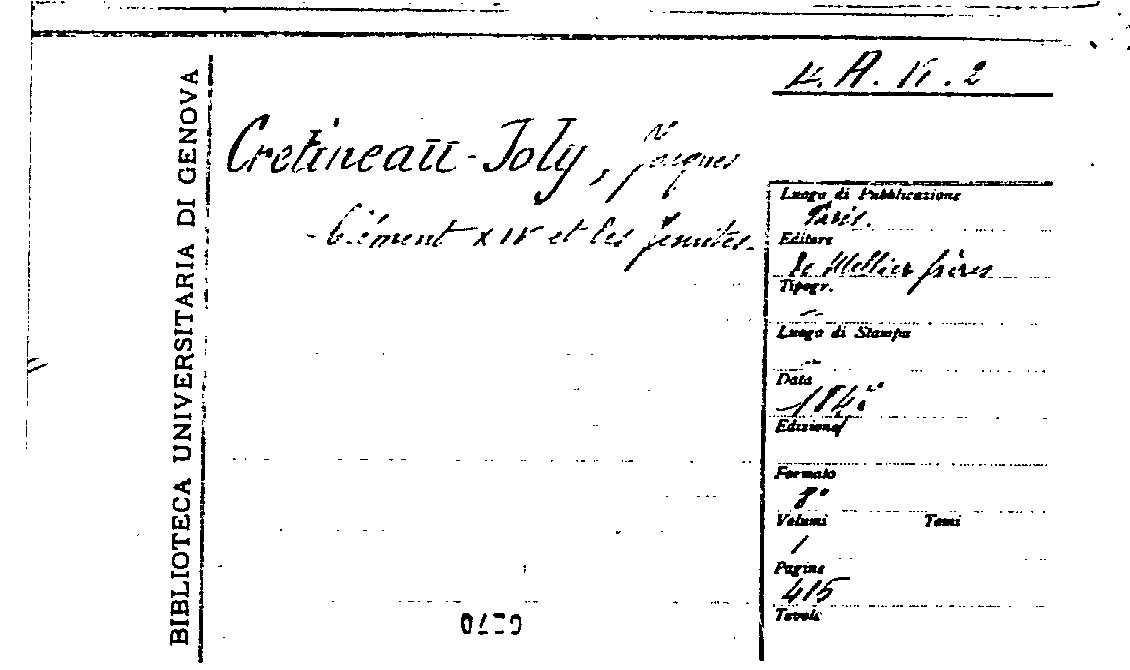 BIBLIOTECA UNIVERSITARIA DI GENOVA
A. 2
Cretineau-Joly, Jacques
- Clément XIV et les Jesuites.
Luogo di Pubblicazione
Paris.
Editore
Mellier frères
Tipogr.
Luogo di Stampa
Data
Edizione
Formato
8°
Volumi Tomi
1
Pagine
415
Tavole